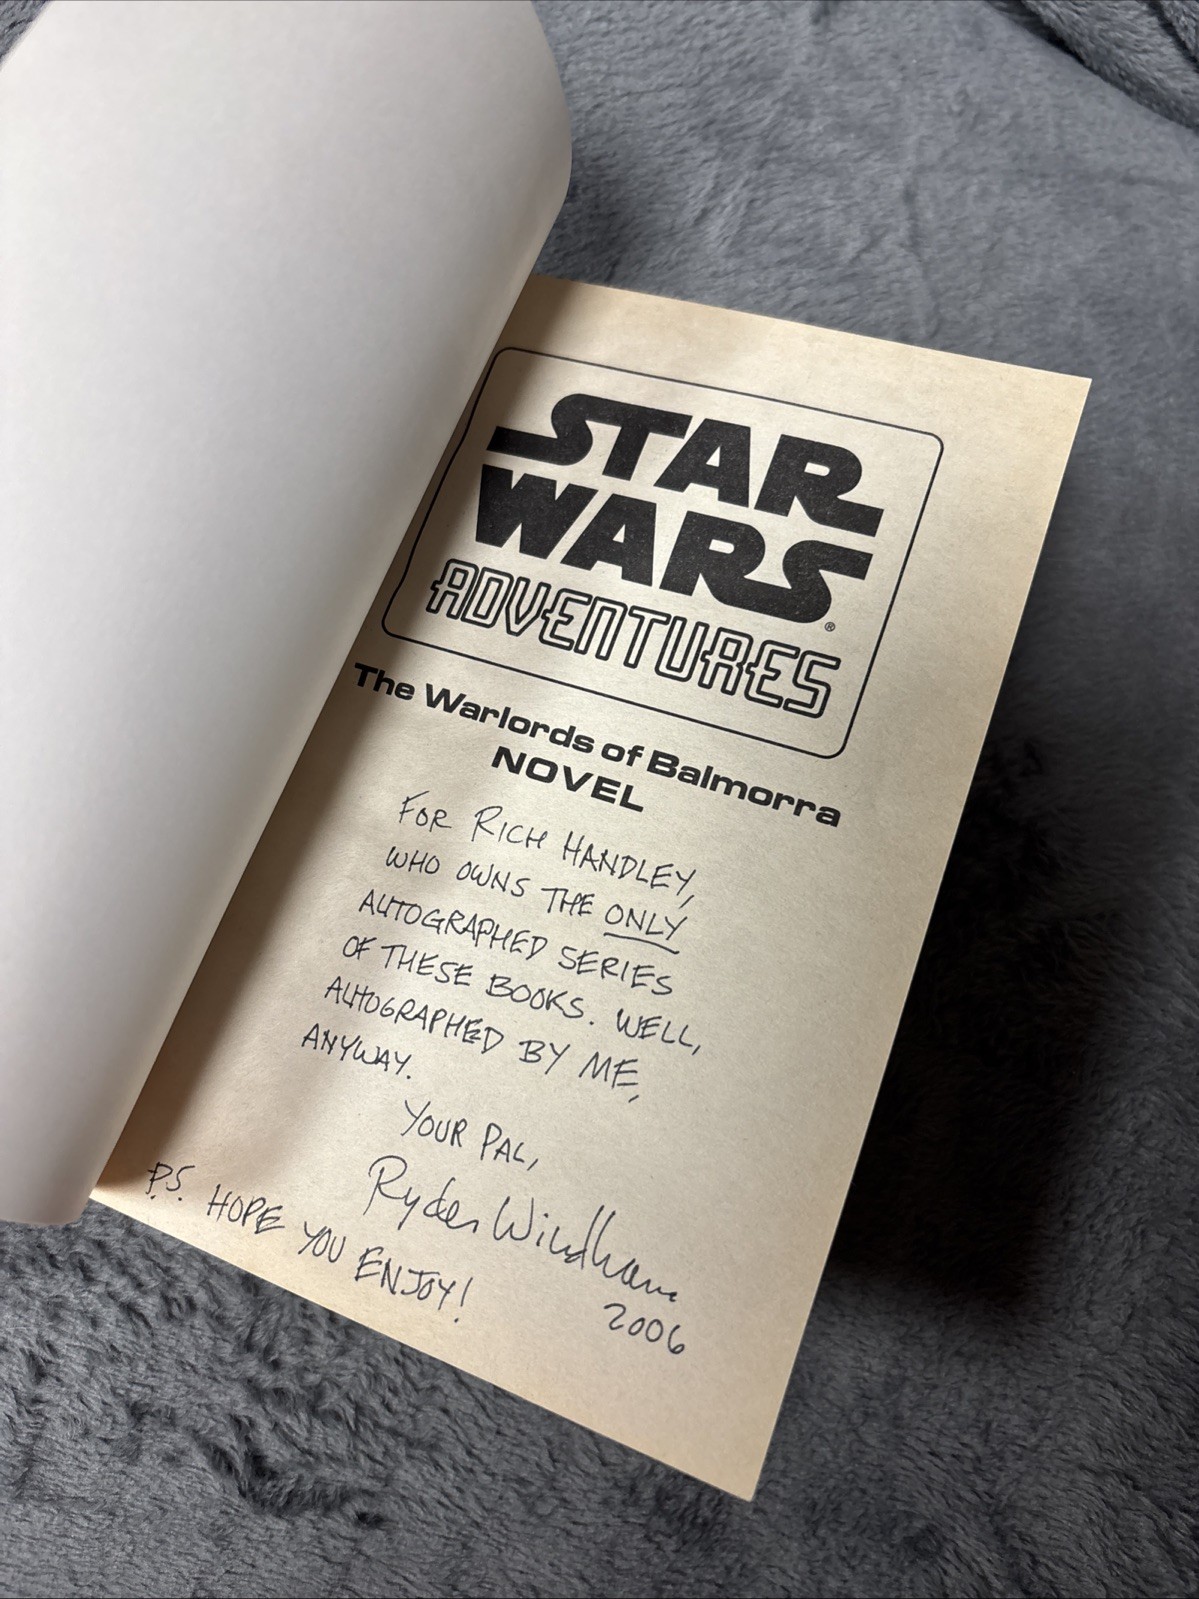 STAR
WARS®
ADVENTURES
The Warlords of Balmorra
NOVEL
FOR RICH HANDLEY,
WHO OWNS THE ONLY
AUTOGRAPHED SERIES
OF THESE BOOKS. WELL,
AUTOGRAPHED BY ME,
ANYWAY.
YOUR PAL,
Ryder Windham
2006
P.S. HOPE YOU ENJOY!